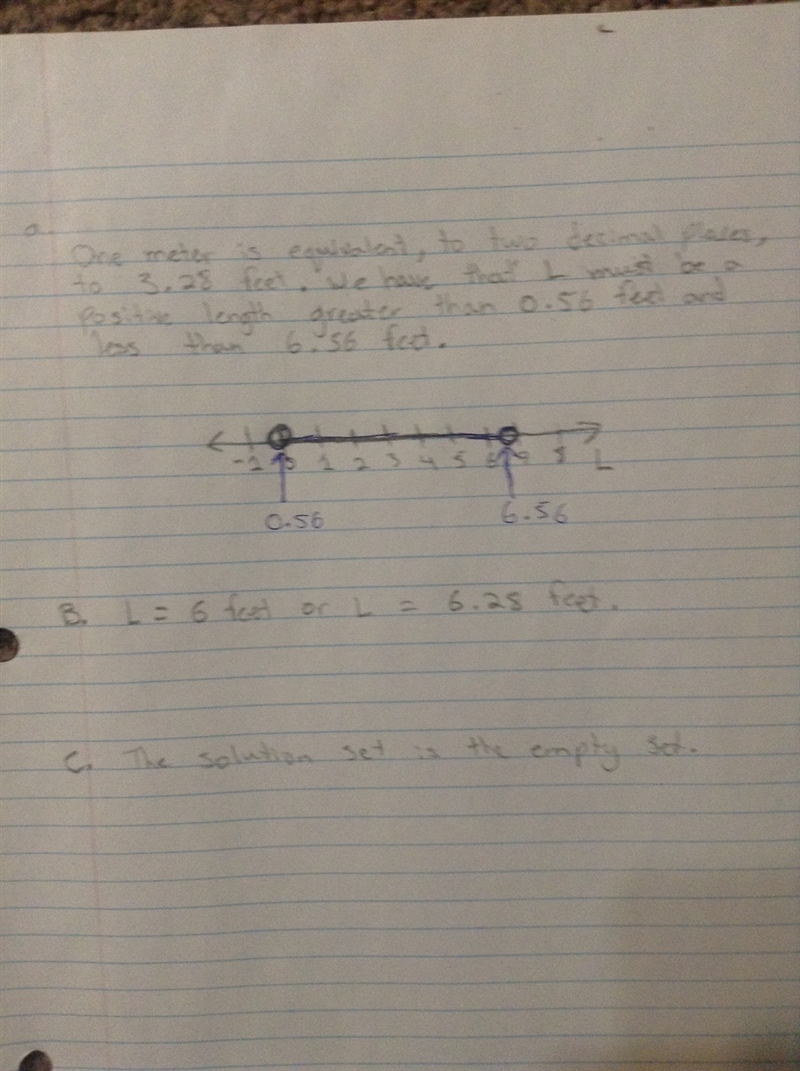 a.
One meter is equivalent, to two decimal places,
to 3.28 feet. We have that L must be a
positive length greater than 0.56 feet and
less than 6.56 feet.
-1 0 1 2 3 4 5 6 8 L
0.56 6.56
B. L = 6 feet or L = 6.28 feet.
C. The solution set is the empty set.